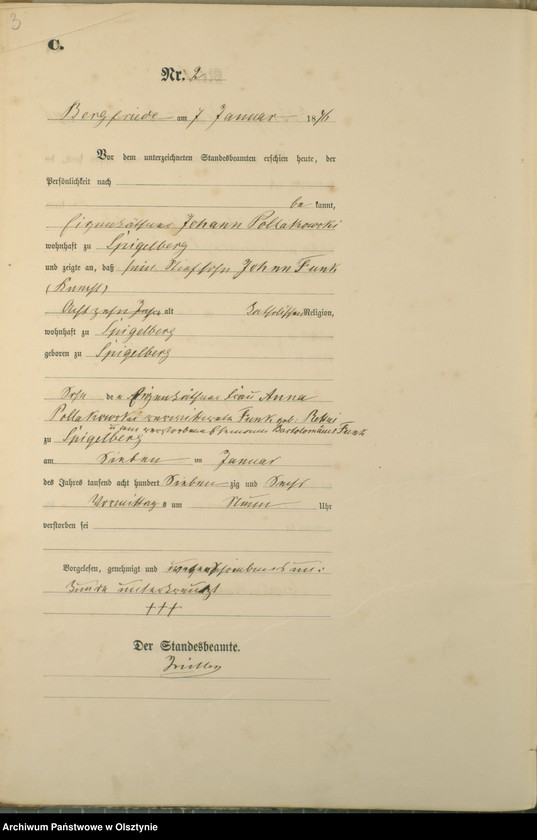 3
C.
Nr. 2
Bergfriede am 7 Januar 1876
Vor dem unterzeichneten Standesbeamten erschien heute, der
Persönlichkeit nach
be kannt,
Eigenkäthner Johann Pollakowski
wohnhaft zu Spigelberg
und zeigte an, daß sein Stiefsohn Johnn Funk
(Knecht)
Acht zehn Jahr alt Katholischer Religion,
wohnhaft zu Spigelberg
geboren zu Spigelberg
Sohn der Eigenkäthner Frau Anna
Pollakowski verwittwete Funk geb:
u dem verstorbene Ehemann Bartolomäus Funk
zu Spigelberg
am Sieben ten Januar
des Jahres tausend acht hundert Sieben zig und Sechs
Vormittag s um Neun Uhr
verstorben sei
Vorgelesen, genehmigt und wegen Schreibens un:
Kunde unterkreuzt
+++
Der Standesbeamte.
Archiwum Państwowe w Olsztynie